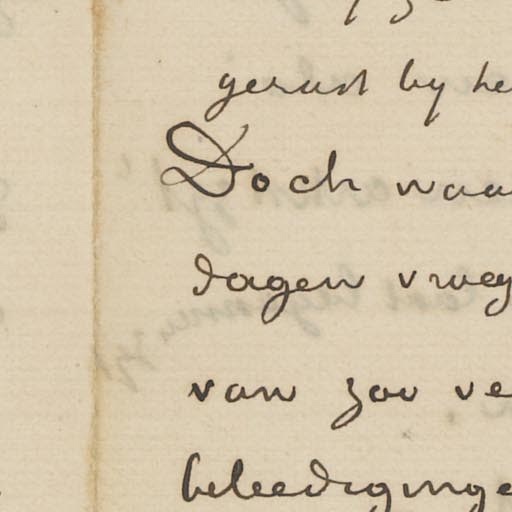 gerust by he
Doch waa
dagen vroeg
van zoo ve
beleediginge